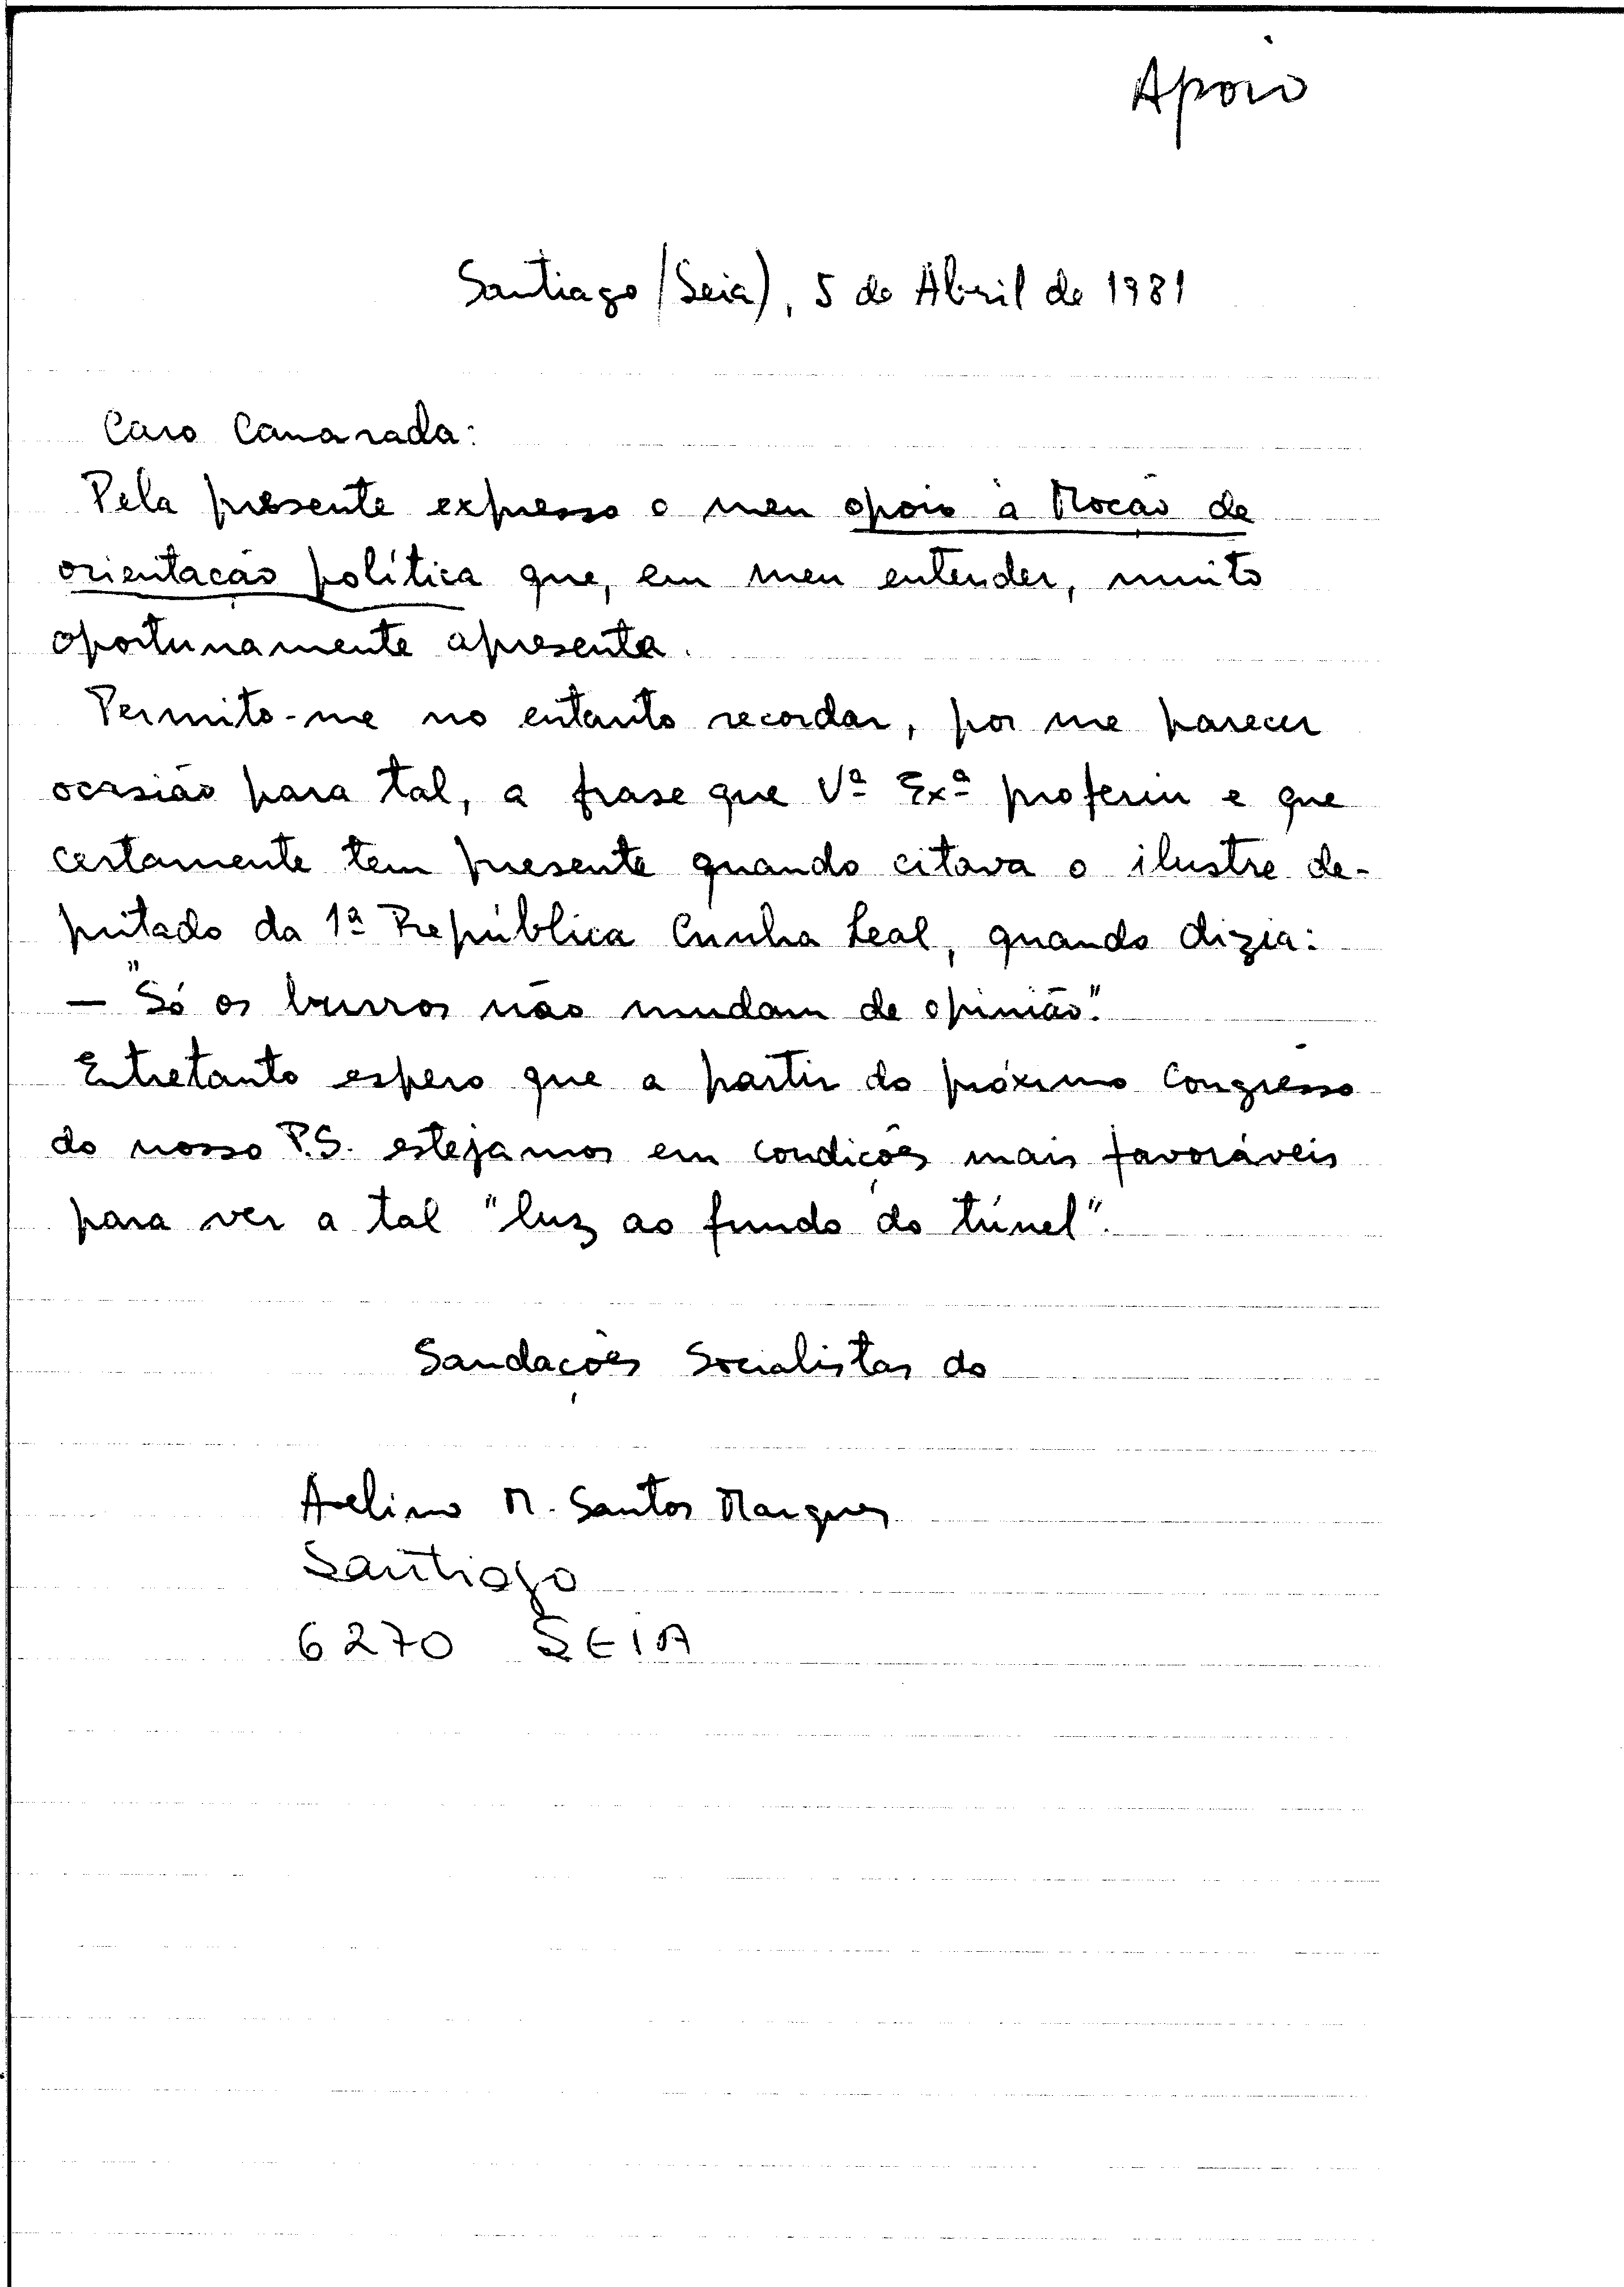 Apoio
Santiago (Seia), 5 de Abril de 1981
Caro Camarada:
Pela presente expresso o meu apoio à Moção de
orientação política que, em meu entender, muito
oportunamente apresenta.
Permito-me no entanto recordar, por me parecer
ocasião para tal, a frase que Vª Exª proferiu e que
certamente tem presente quando citava o ilustre de-
putado da 1ª República Cunha Leal, quando dizia:
— "Só os burros não mudam de opinião".
Entretanto espero que a partir do próximo Congresso
do nosso P.S. estejamos em condições mais favoráveis
para ver a tal "luz ao fundo do túnel".
Saudações Socialistas do
Avelino M. Santos Marques
Santiago
6270 SEIA